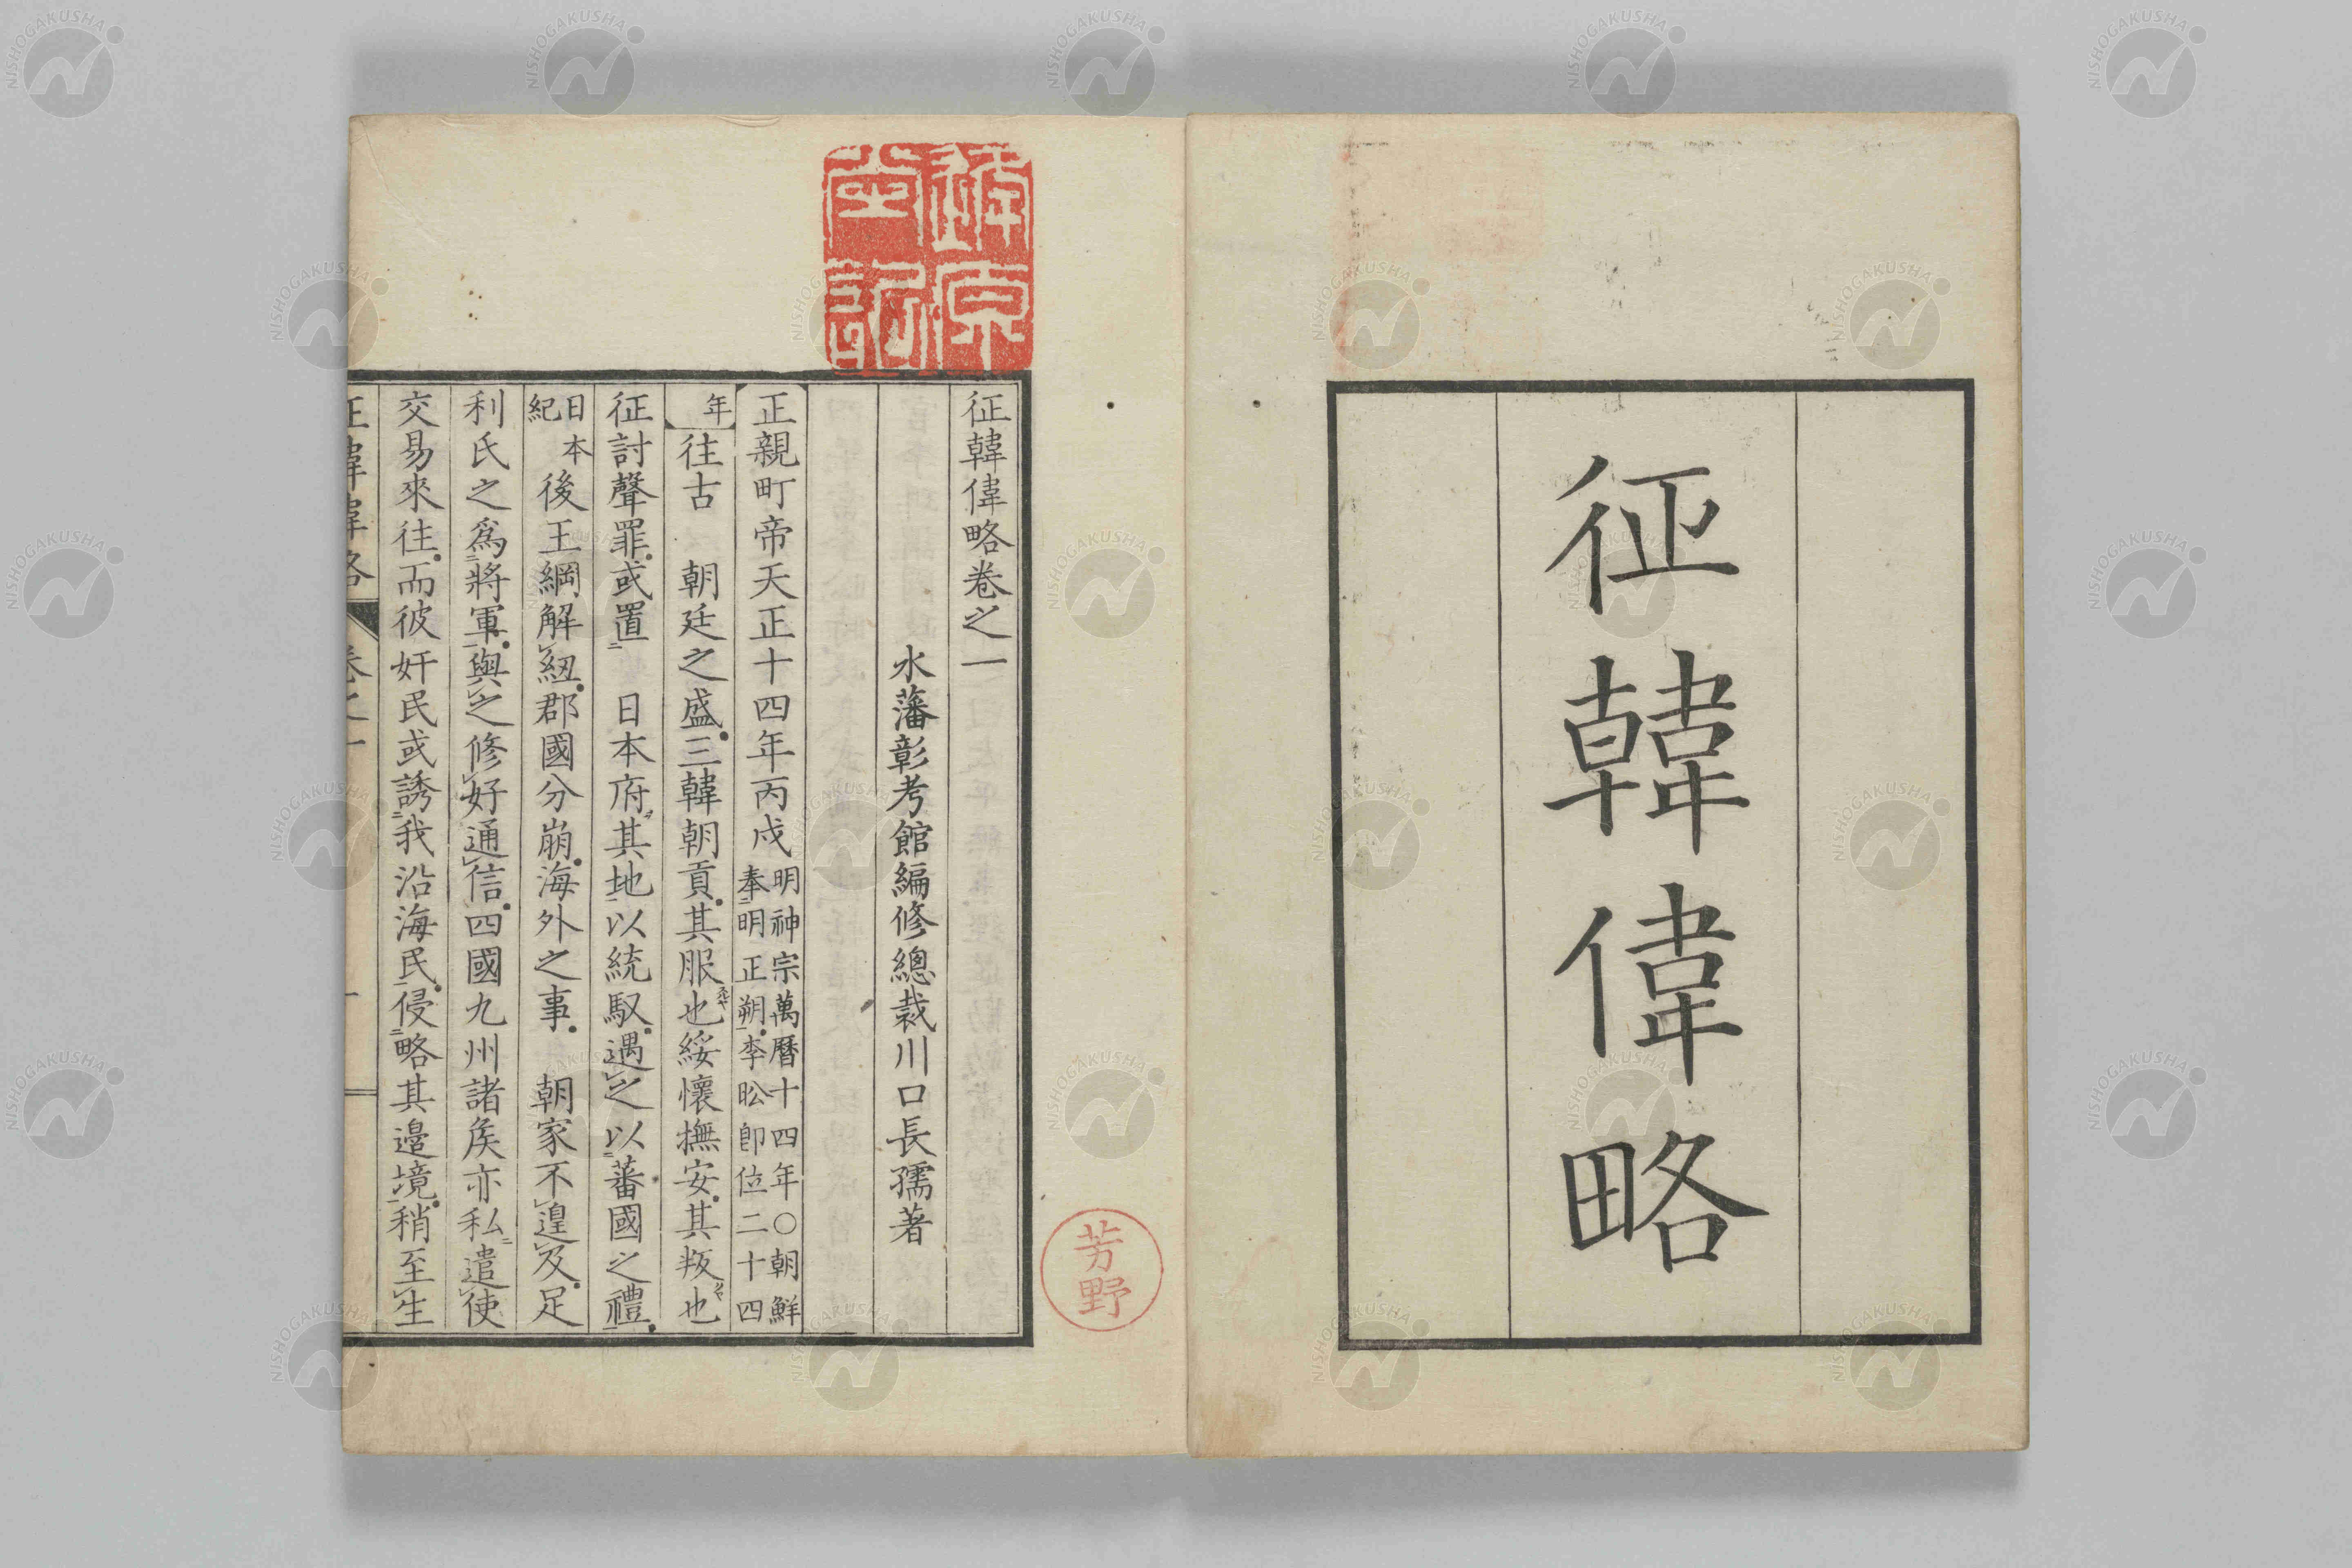 征韓偉略
征韓偉略卷之一
水藩彰考館編修總裁川口長孺著
正親町帝天正十四年丙戌明神宗萬曆十四年○朝鮮
奉明正朔李昖卽位二十四
年往古　朝廷之盛三韓朝貢其服也綏懷撫安其叛也
征討聲罪或置　日本府其地以統馭遇之以蕃國之禮
日本
紀後王綱解紐郡國分崩海外之事　朝家不遑及足
利氏之爲將軍與之修好通信四國九州諸矦亦私遣使
交易來往而彼奸民或誘我沿海民侵略其邊境稍至生
征韓偉略　卷之一　一
芳野
NISHOGAKUSHA